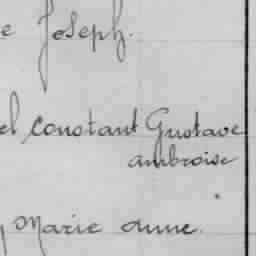 e Joseph.
el Constant Gustave
ambroise
Marie Anne.